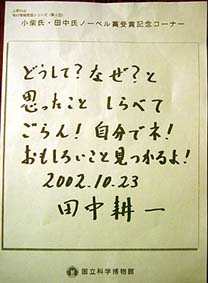 上野の山
知の情報発信シリーズ(第2回)
小柴氏・田中氏ノーベル賞受賞記念コーナー
どうして?なぜ?と
思ったこと しらべて
ごらん!自分でネ!
おもしろいこと見つかるよ!
2002.10.23
田中耕一
国立科学博物館